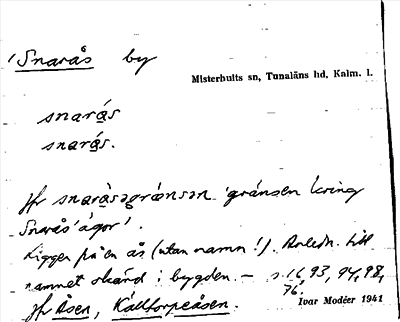 Snarås by
Misterhults sn, Tunaläns hd, Kalm. l.
snarás
snarás.
Jfr snaràsəgrænsən 'gränsen kring
Snarås' ägor'.
Ligger på en ås (utan namn!). Anledn. till
namnet okänd i bygden. – s. 16, 93, 94, 98,
76.
Jfr Åsen, Källtorpeåsen.
Ivar Modéer 1941